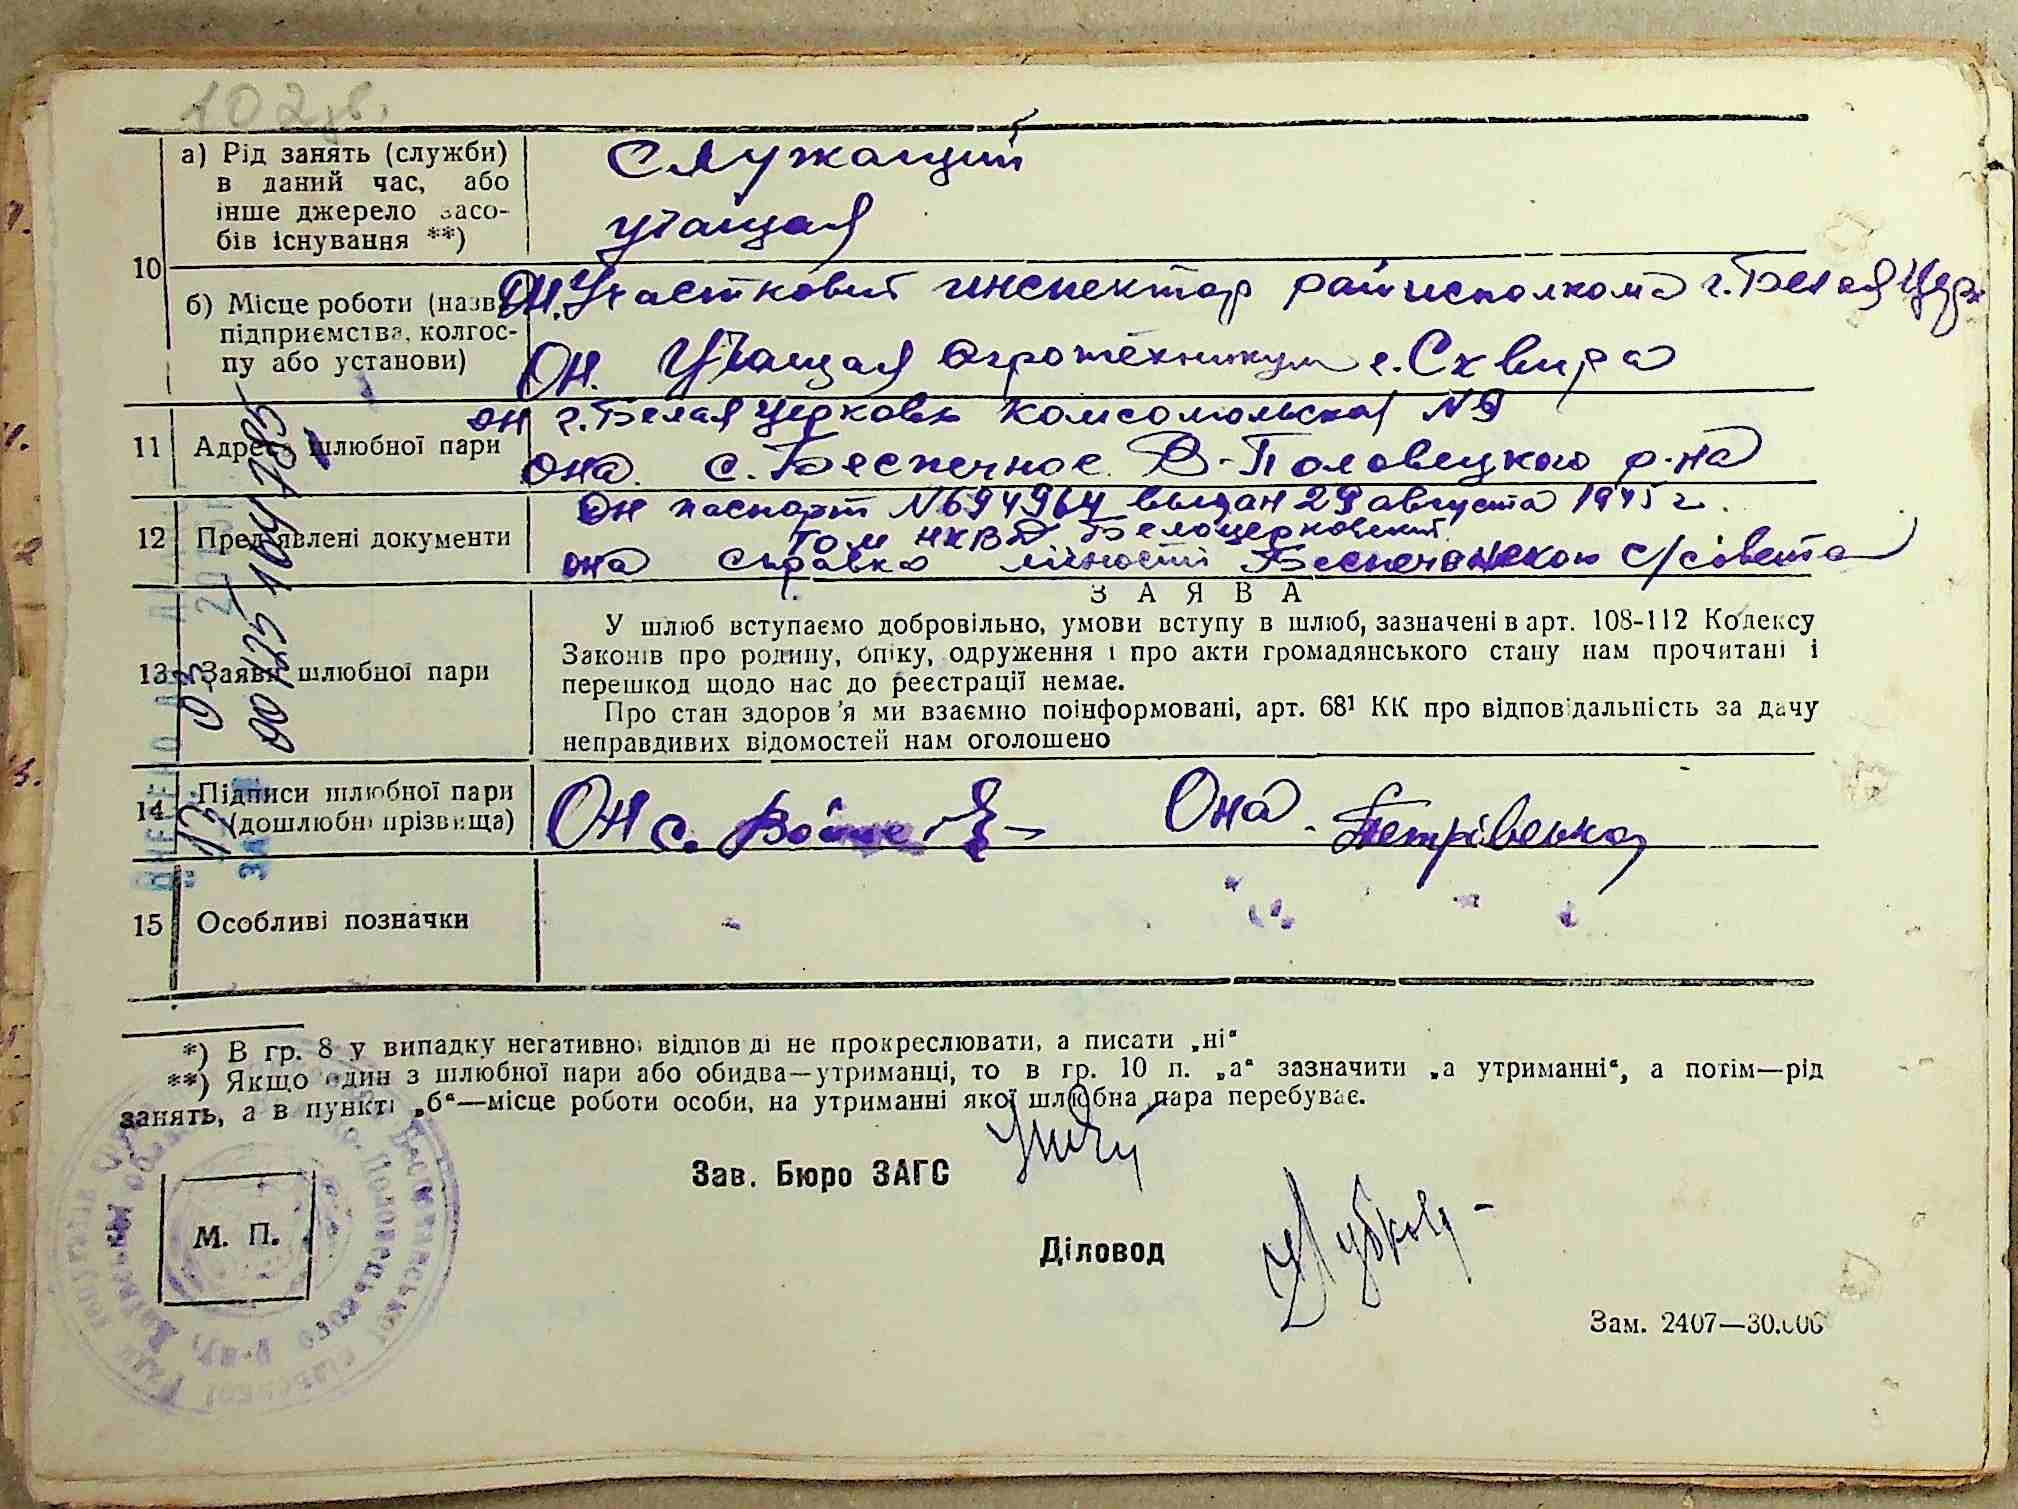 102 зв.
а) Рід занять (служби)
в даний час, або
інше джерело засо-
бів існування **)
Служащий
учащая
10
б) Місце роботи (назв
підприємства, колгос-
пу або установи)
Он. Участковый инспектор райисполкома г. Белая Церк
Он. Учащая Агротехникум г. Сквира
11 Адреса шлюбної пари
он г. Белая Церковь Комсомольская №9
она с. Беспечное В-Половецкого р-на
12 Пред'явлені документи
Он паспорт №694964 выдан 29 августа 1945 г.
Гом НКВД Белоцерковский
она справка Беспечанского с/совета
13 Заява шлюбної пари
ЗАЯВА
У шлюб вступаємо добровільно, умови вступу в шлюб, зазначені в арт. 108-112 Кодексу
Законів про родину, опіку, одруження і про акти громадянського стану нам прочитані і
перешкод щодо нас до реєстрації немає.
Про стан здоров'я ми взаємно поінформовані, арт. 68¹ КК про відповідальність за дачу
неправдивих відомостей нам оголошено
14 Підписи шлюбної пари
(дошлюбні прізвища)
Он с. Она. Петрівська
15 Особливі позначки
*) В гр. 8 у випадку негативної відповіді не прокреслювати, а писати „ні“
**) Якщо один з шлюбної пари або обидва—утриманці, то в гр. 10 п. „а“ зазначити „а утриманні“, а потім—рід
занять, а в пункті „б“—місце роботи особи, на утриманні якої шлюбна пара перебуває.
Зав. Бюро ЗАГС
Діловод
М. П.
Зам. 2407—30.000
00125104785